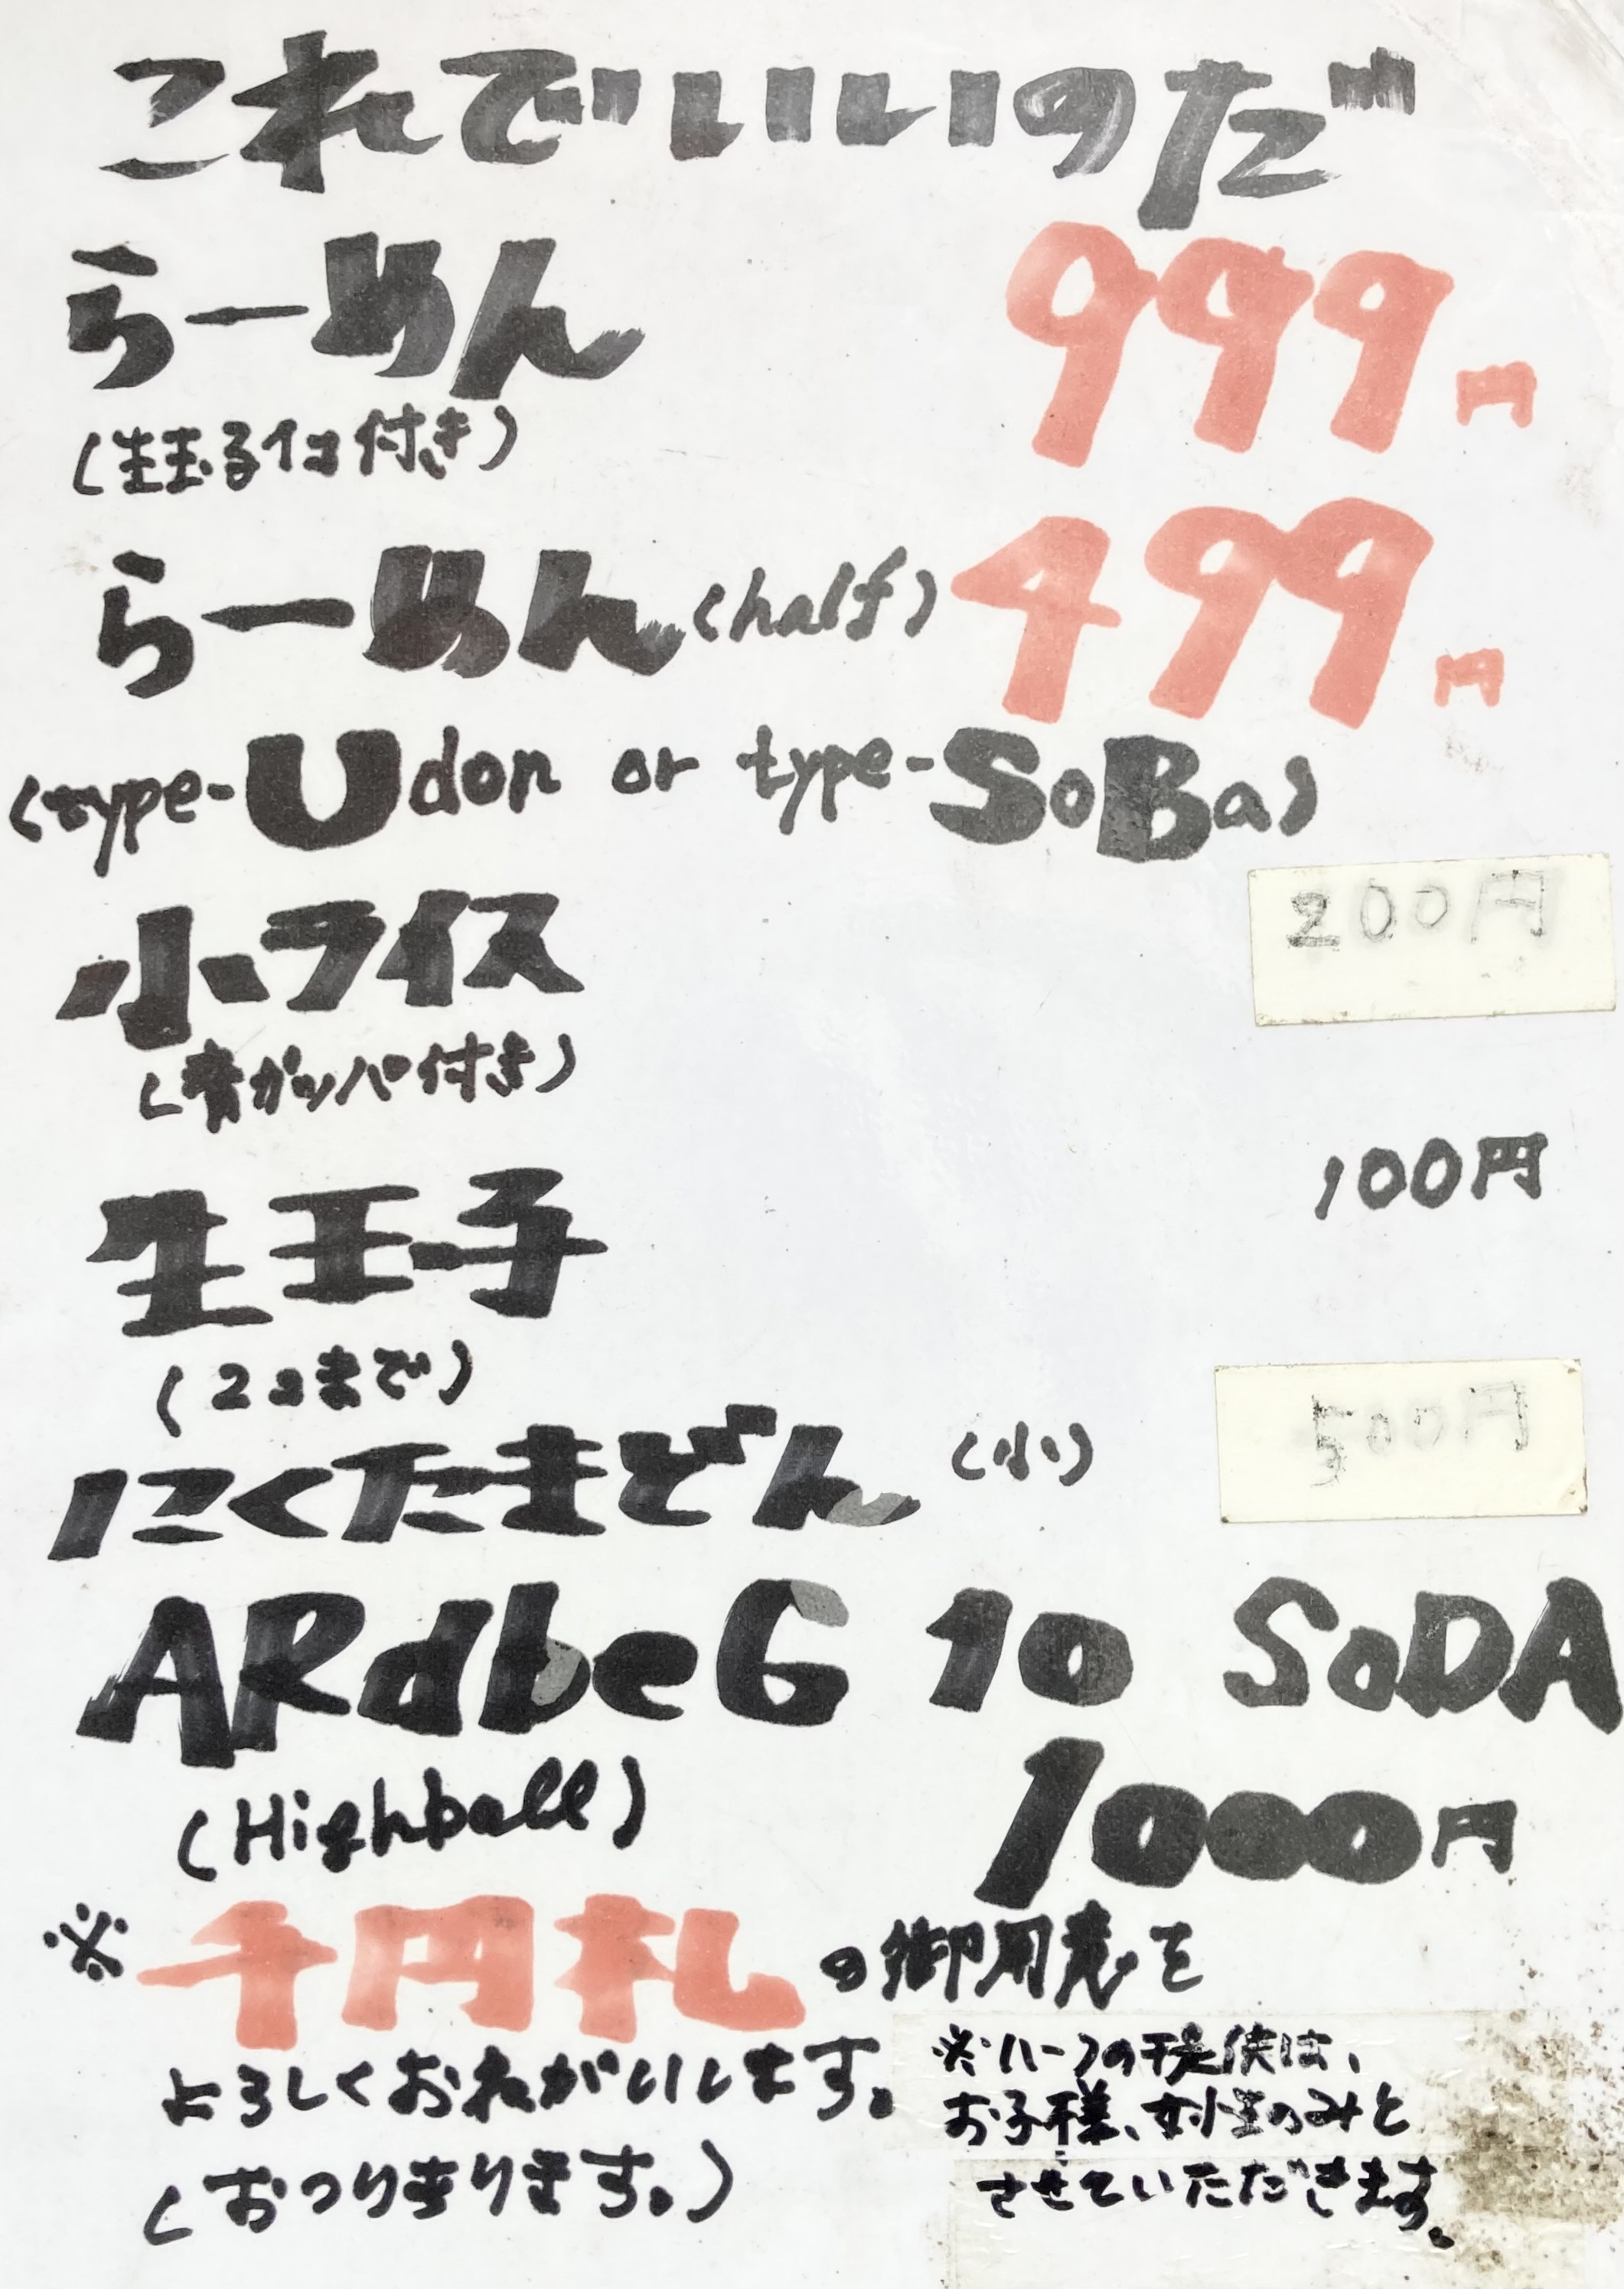 これでいいのだ
らーめん 999円
(生玉子1コ付き)
らーめん(half) 499円
(type-Udon or type-SoBa)
小ライス 200円
(青ガッパ付き)
生玉子 100円
(2コまで)
にくたまどん (小) 500円
ARdbeG 10 SoDA
(Highball) 1000円
※千円札の御用意を
よろしくおねがいします。
(おつりあります。)
※ハーフの提供は、
お子様、女性のみと
させていただきます。